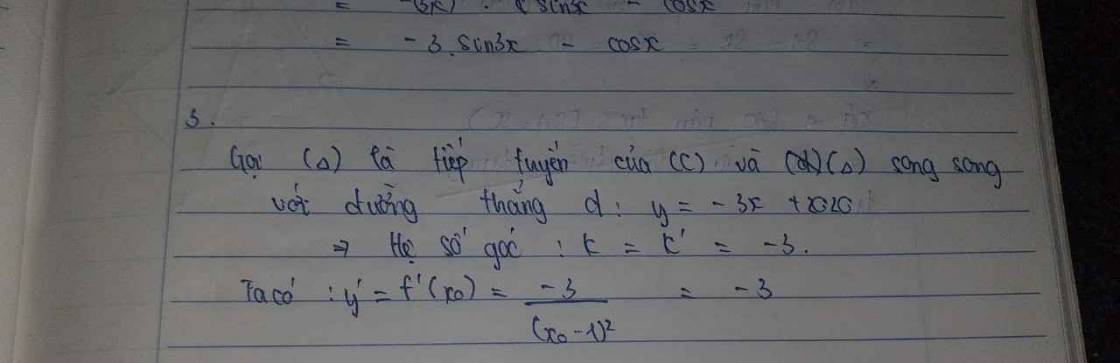 = -(3x)'. sin3x - cosx
= -3.sin3x - cosx
3.
Gọi (Δ) là tiếp tuyến của (C) và (d)(Δ) song song
với đường thẳng d: y = -3x + 2020
⇒ Hệ số góc : k = k' = -3.
Ta có : y' = f'(x₀) = -3 / (x₀ - 1)² = -3